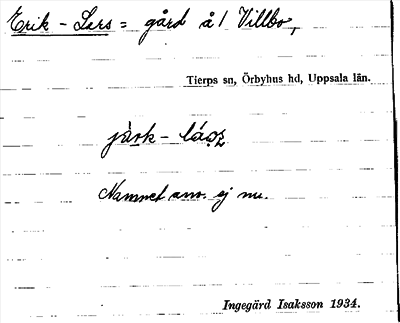 Erik-Lars = gård å l Villbo,
Tierps sn, Örbyhus hd, Uppsala län.
Namnet anv. ej nu.
Ingegärd Isaksson 1934.